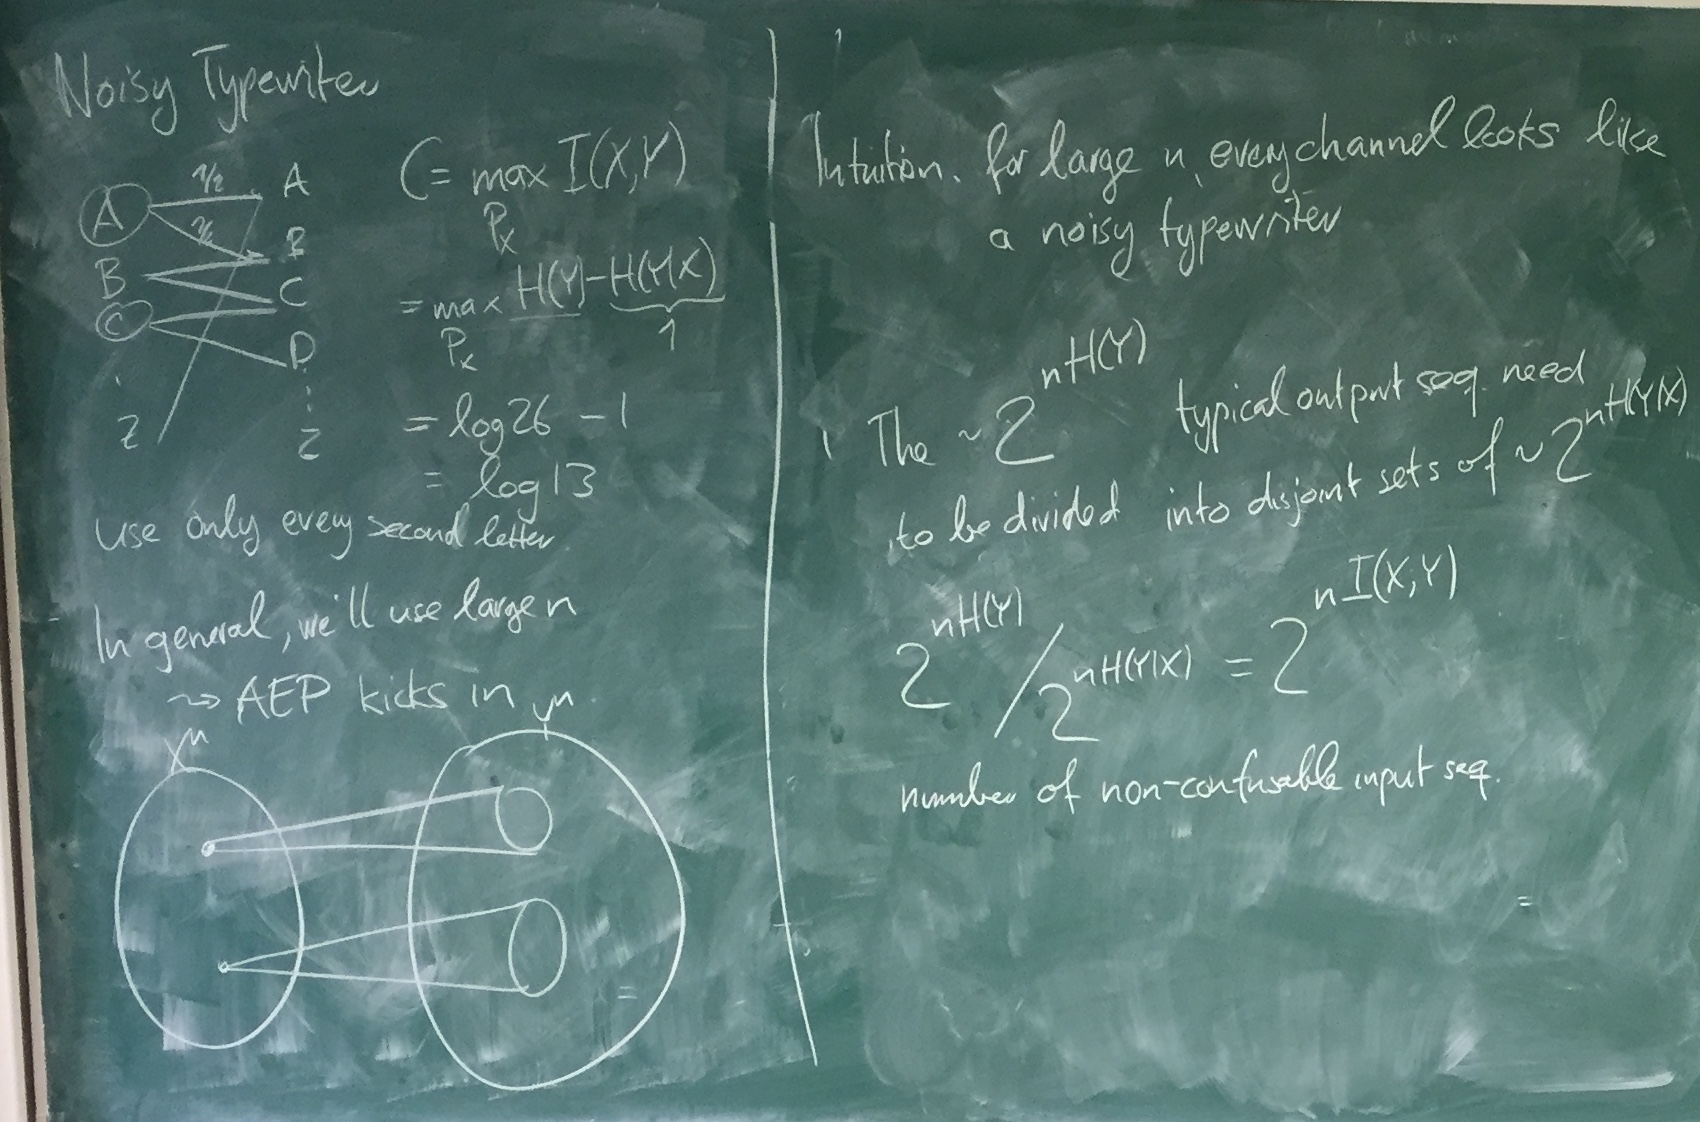 Noisy Typewriter
1/2 A
A 1/2 B
B C
C D
Z Z
C = max I(X,Y)
P_X
= max H(Y) - H(Y|X)
P_X 1
= log 26 - 1
= log 13
use only every second letter
In general, we'll use large n
⇝ AEP kicks in
X^n Y^n
=
Intuition. for large n, every channel looks like
a noisy typewriter
The ~ 2^{nH(Y)} typical output seq. need
to be divided into disjoint sets of ~ 2^{nH(Y|X)}
2^{nH(Y)} / 2^{nH(Y|X)} = 2^{nI(X;Y)}
number of non-confusable input seq.
=